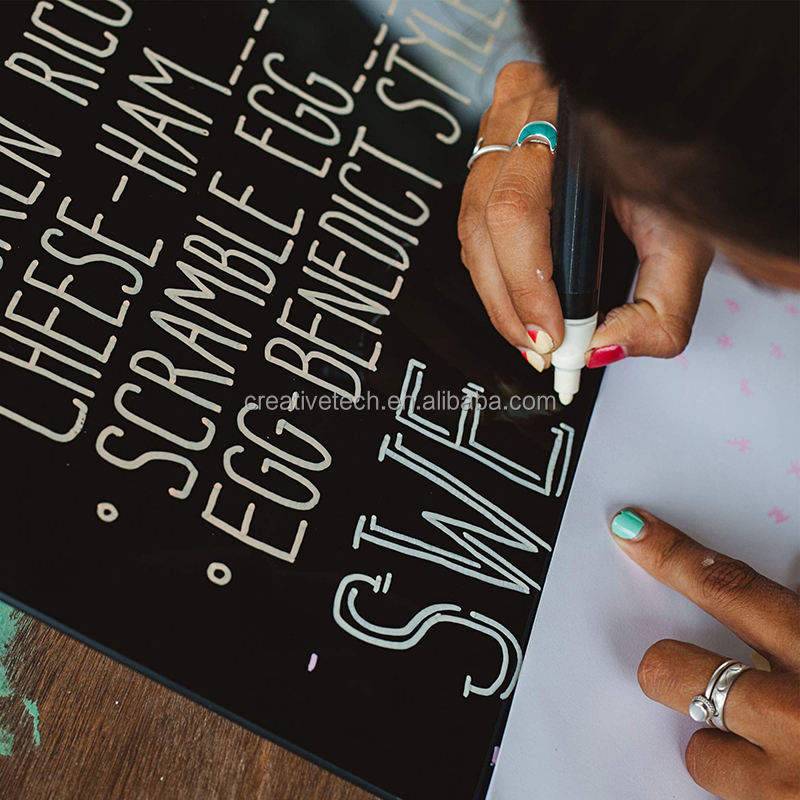 RICO
CHEESE-HAM
SCRAMBLE EGG
EGG BENEDICT STYLE
SWE
creativetech.en.alibaba.com